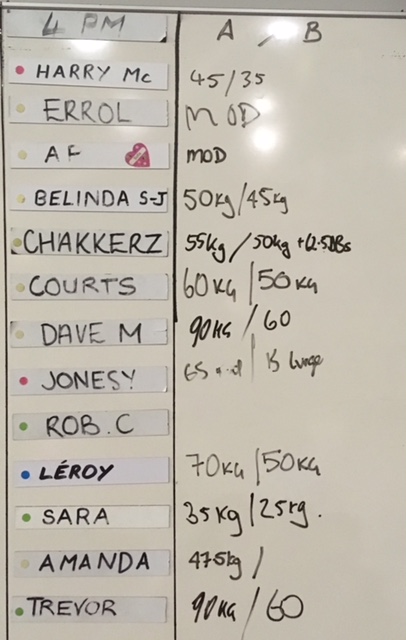 4 PM A / B
HARRY Mc 45/35
ERROL MOD
AF MOD
BELINDA S-J 50kg/45kg
CHAKKERZ 55kg/50kg +(2.5LBs
COURTS 60KG/50KG
DAVE M 90KG/60
JONESY 65 / 15 lunge
ROB.C
LÉROY 70KG/50KG
SARA 35kg/25kg.
AMANDA 47.5kg/
TREVOR 90KG/60